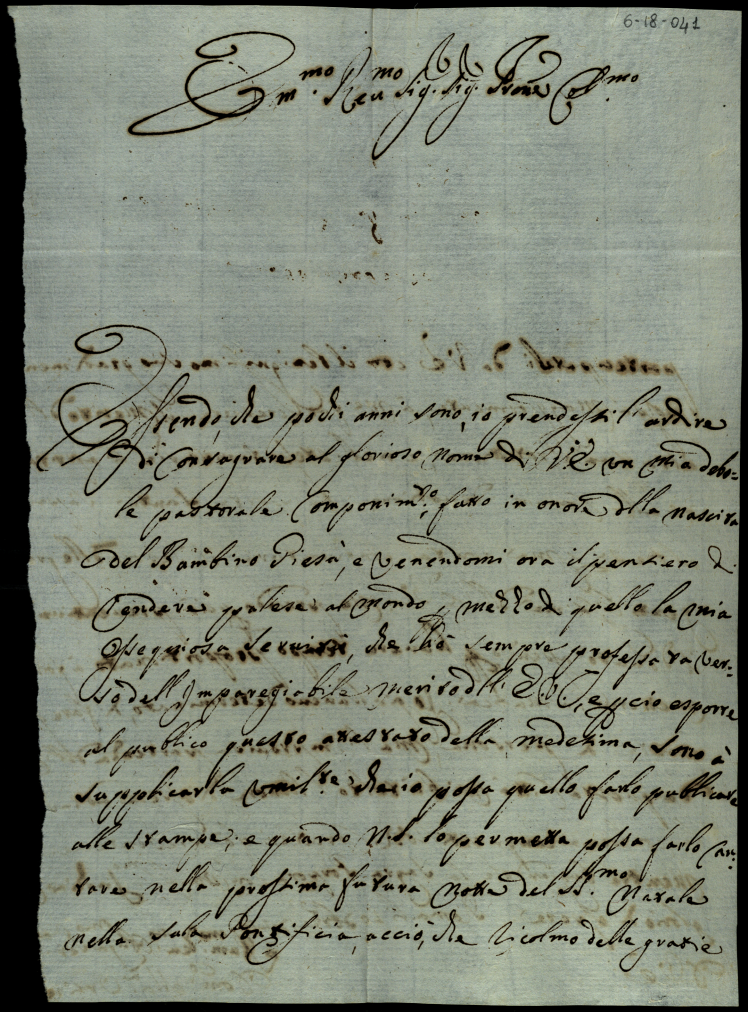 6-18-041
Em.mo Rev.mo Sig. Sig. Prone Col.mo
Essendo, che pochi anni sono, io prendessi l'ardire
di Consagrare al glorioso nome di V.E. un mia debo-
le pastorale Componim.to, fatto in onore della nascita
del Bambino Giesù, e venendomi ora il pensiero di
rendere palese al mondo p mezzo di quello la mia
ossequiosa servitù, che hò sempre professata ver-
so dell'Imparegiabile merito dell' E.V., e p ciò esporre
al publico questo attestato della medezima, sono à
supplicarla umil.te che io possa quello farlo publicare
alle stampe, e quando N.S. lo permetta possa farlo can-
tare nella prossima futura notte del SS.mo Natale
nella sala Pontificia, acciò, che ricolmo delle grazie